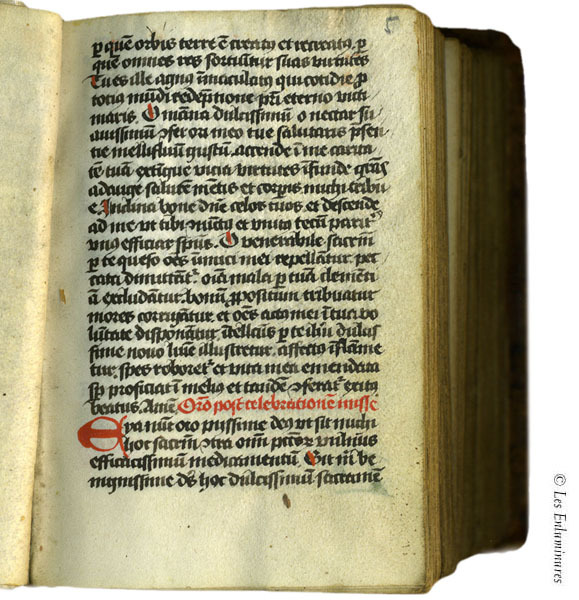 5
p quē orbis terre ē creatꝯ et recreatꝯ. p
quē omnes res sortiūtur suas virtutes
Tu es ille agnus īmaculatꝯ qui cotidie p
totiꝯ mūdi redēptione pr̄i eterno victi
maris. O māna dulcissimū o nectar su
auissimū ꝯfer ori meo tue salutaris p̄sen
tie mellifluū gustū. accende ī me carita
tē tuā. extīgue vicia virtutes īfunde gr̄as
adauge salutē mētis et corpīs michi tribu
e. Inclina bone dn̄e celos tuos. et descende
ad me vt tibi iūctꝯ et vnitꝯ tecū pariter
vnus efficiar spūs. O venerabile sacr̄m
p te queso oēs īimici mei repellātur. pec
cata dimittātur. oīa mala p tuā clementi
ā excludātur. bonū p̄positum tribuatur
mores corrigātur. et oēs actꝯ mei ī tua vo
lūtate dispōnātur. ītellectꝯ p te ihū dulcis
sime nouo lūīe illustretur. affectꝯ īflāme
tur. spes roboret᷑ et vita mea emendata
sp̄ proficiat ī meliꝯ et tandē ꝯferat᷑ exitꝯ
beatus. Amē. Orō post celebrationē misse
Eya nūc oro piissime deꝯ vt sit michi
hoc sacr̄m ꝯtra om̄i pctōꝝ vulnus
efficacissimū medicamentū. Sit m̄ be
nignissime ds̄ hoc dulcissimū sacramē
© Les Enluminures